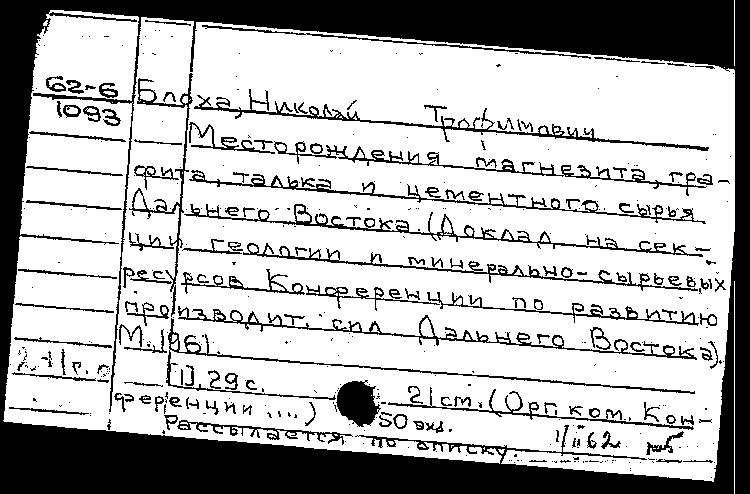 62-6
1093
Блоха, Николай Трофимович
Месторождения магнезита, гра-
фита, талька и цементного сырья
Дальнего Востока. (Доклад на сек-
ции геологии и минерально-сырьевых
ресурсов Конференции по развитию
производит. сил Дальнего Востока).
М., 1961.
[1], 29 с. 21 см. (Орг. ком. Кон-
ференции ....) 50 экз.
Рассылается по списку. 1/II 62